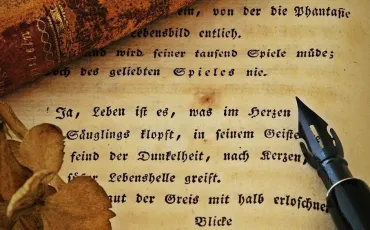 ein, von der die Phantasie
Lebensbild entlich.
und wird seiner tausend Spiele müde;
doch des geliebten Spieles nie.
Ja, Leben ist es, was im Herzen
Säuglings klopft, in seinem Geiste
feind der Dunkelheit, nach Kerzen,
Lebenshelle greift.
der Greis mit halb erloschne
Blicke